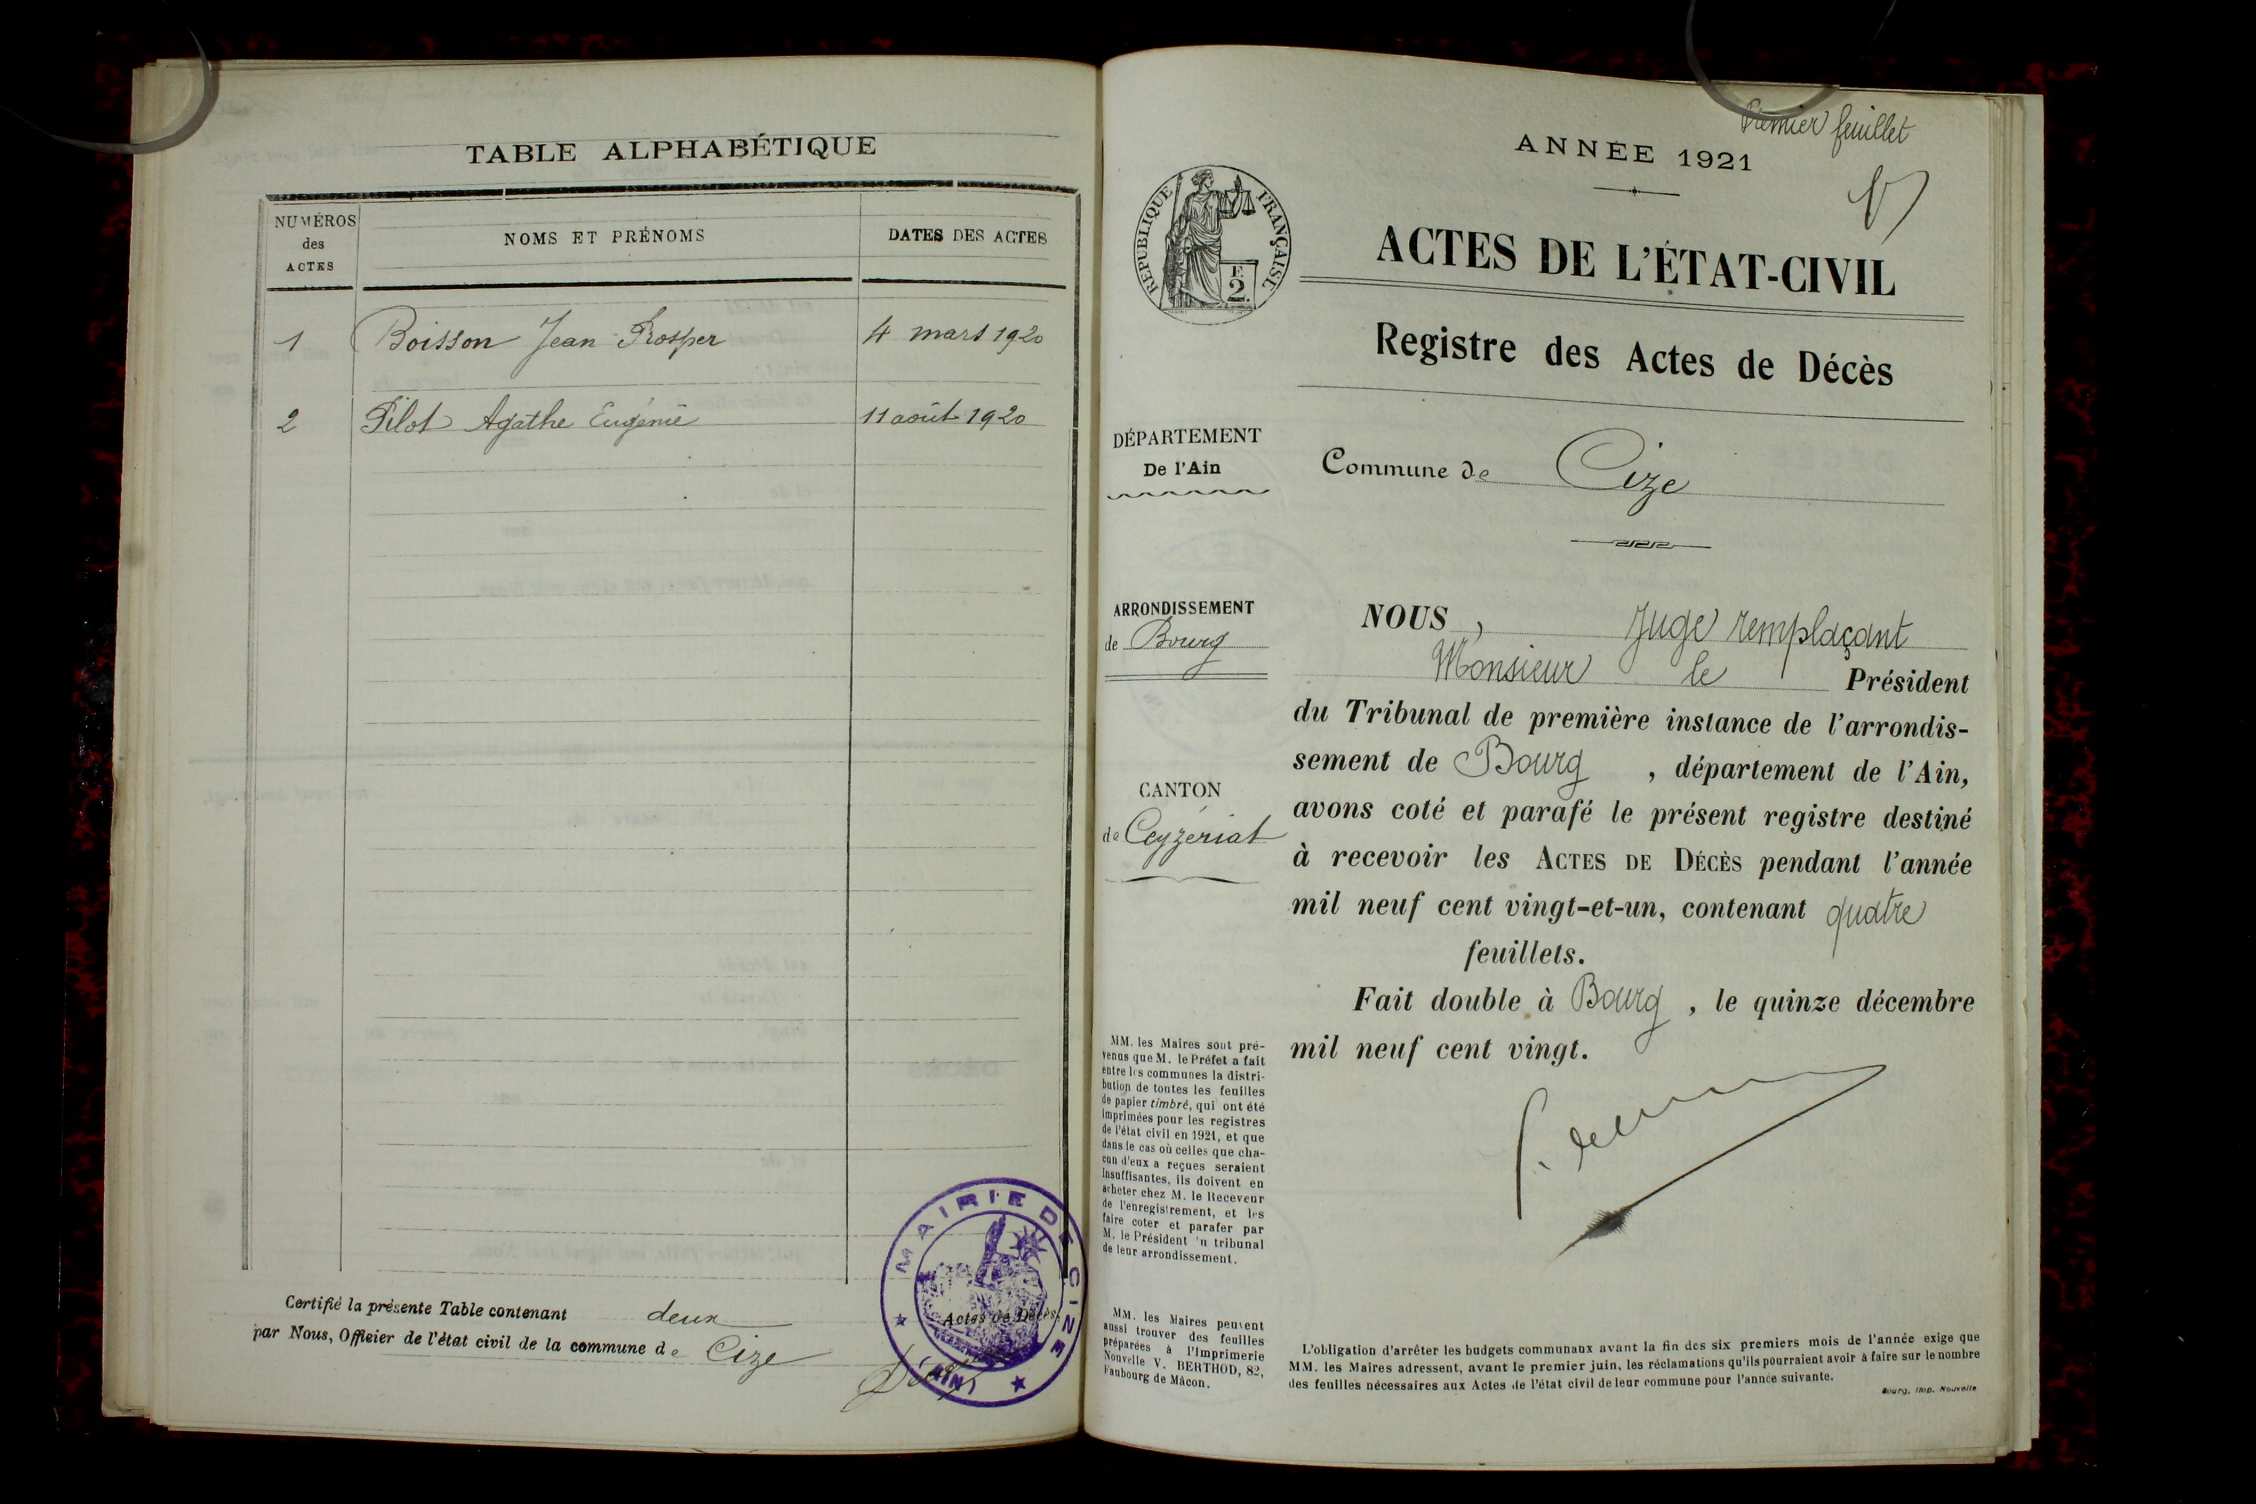 TABLE ALPHABÉTIQUE
NUMÉROS
des
ACTES
NOMS ET PRÉNOMS
DATES DES ACTES
1 Boisson Jean Prosper 4 mars 1920
2 Pilot Agathe Eugénie 11 août 1920
Certifié la présente Table contenant deux Actes de Décès,
par Nous, Officier de l'état civil de la commune de Cize
MAIRIE DE CIZE
(AIN)
Premier feuillet
ANNÉE 1921
RÉPUBLIQUE FRANÇAISE
F
2.
ACTES DE L'ÉTAT-CIVIL
Registre des Actes de Décès
DÉPARTEMENT
De l'Ain
Commune de Cize
ARRONDISSEMENT
de Bourg
CANTON
de Ceyzériat
NOUS, Juge remplaçant
Monsieur le Président
du Tribunal de première instance de l'arrondis-
sement de Bourg, département de l'Ain,
avons coté et parafé le présent registre destiné
à recevoir les ACTES DE DÉCÈS pendant l'année
mil neuf cent vingt-et-un, contenant quatre
feuillets.
Fait double à Bourg, le quinze décembre
mil neuf cent vingt.
MM. les Maires sont pré-
venus que M. le Préfet a fait
entre les communes la distri-
bution de toutes les feuilles
de papier timbré, qui ont été
imprimées pour les registres
de l'état civil en 1921, et que
dans le cas où celles que cha-
cun d'eux a reçues seraient
insuffisantes, ils doivent en
acheter chez M. le Receveur
de l'enregistrement, et les
faire coter et parafer par
M. le Président 'u tribunal
de leur arrondissement.
MM. les Maires peuvent
aussi trouver des feuilles
préparées à l'Imprimerie
Nouvelle V. BERTHOD, 82,
Faubourg de Mâcon.
L'obligation d'arrêter les budgets communaux avant la fin des six premiers mois de l'année exige que
MM. les Maires adressent, avant le premier juin, les réclamations qu'ils pourraient avoir à faire sur le nombre
des feuilles nécessaires aux Actes de l'état civil de leur commune pour l'année suivante.
Bourg, Imp. Nouvelle